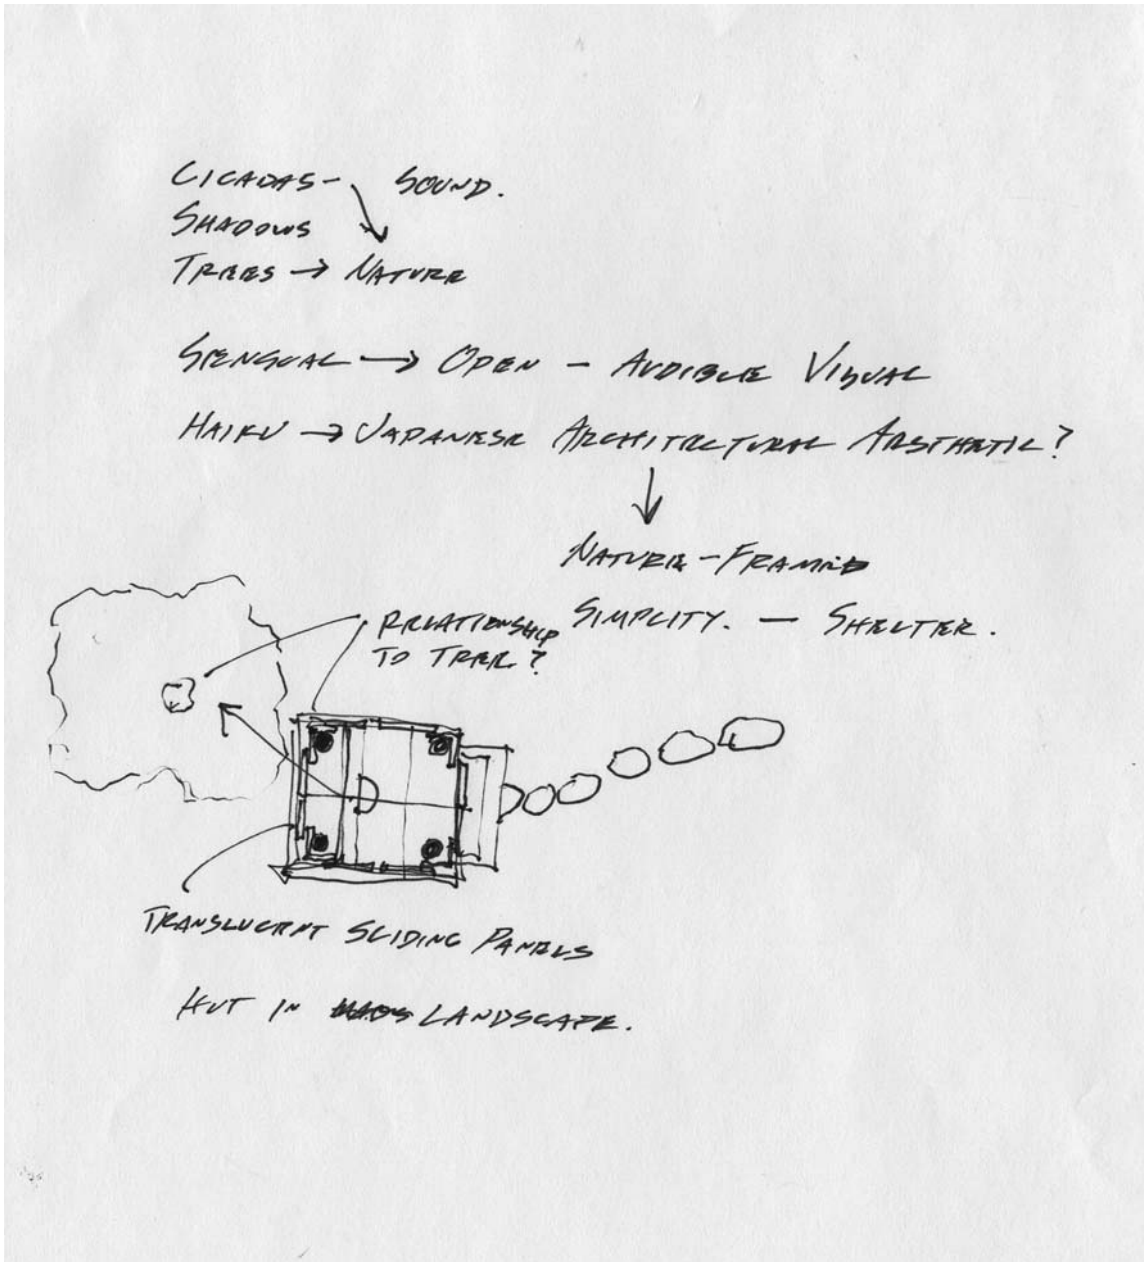 CICADAS - SOUND.
SHADOWS
TREES → NATURE
SENSUAL → OPEN - AUDIBLE VISUAL
HAIKU → JAPANESE ARCHITECTURAL AESTHETIC?
NATURE - FRAMED
SIMPLCITY. - SHELTER.
RELATIONSHIP
TO TREE?
TRANSLUCENT SLIDING PANELS
HUT IN LANDSCAPE.